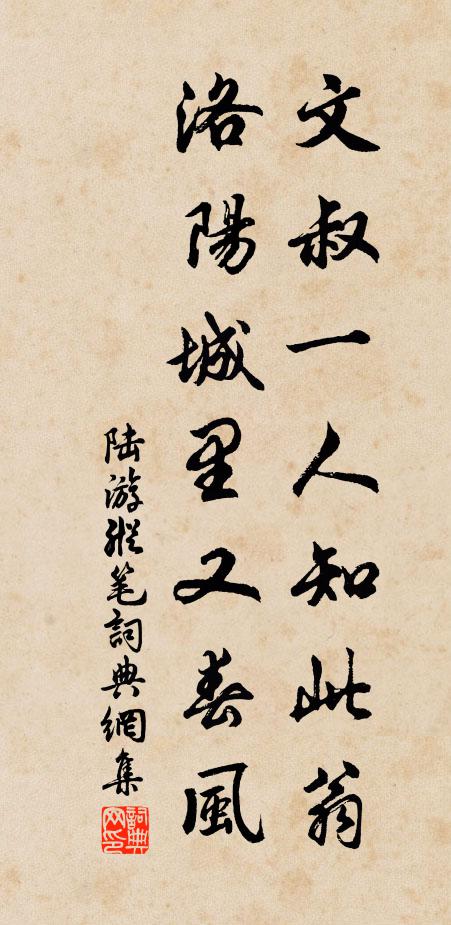 文叔一人知此翁
洛陽城里又春風
陆游縱笔詞典網集
詞典网印